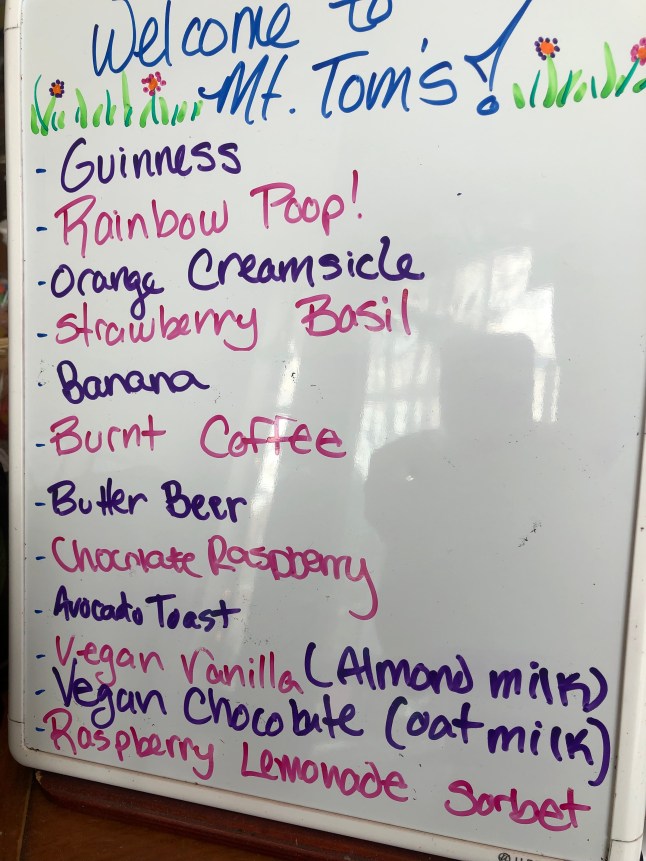 Welcome to
Mt. Tom's!
- Guinness
- Rainbow Poop!
- Orange Creamsicle
- Strawberry Basil
- Banana
- Burnt Coffee
- Butter Beer
- Chocolate Raspberry
- Avocado Toast
- Vegan Vanilla (Almond milk)
- Vegan Chocolate (oat milk)
- Raspberry Lemonade Sorbet